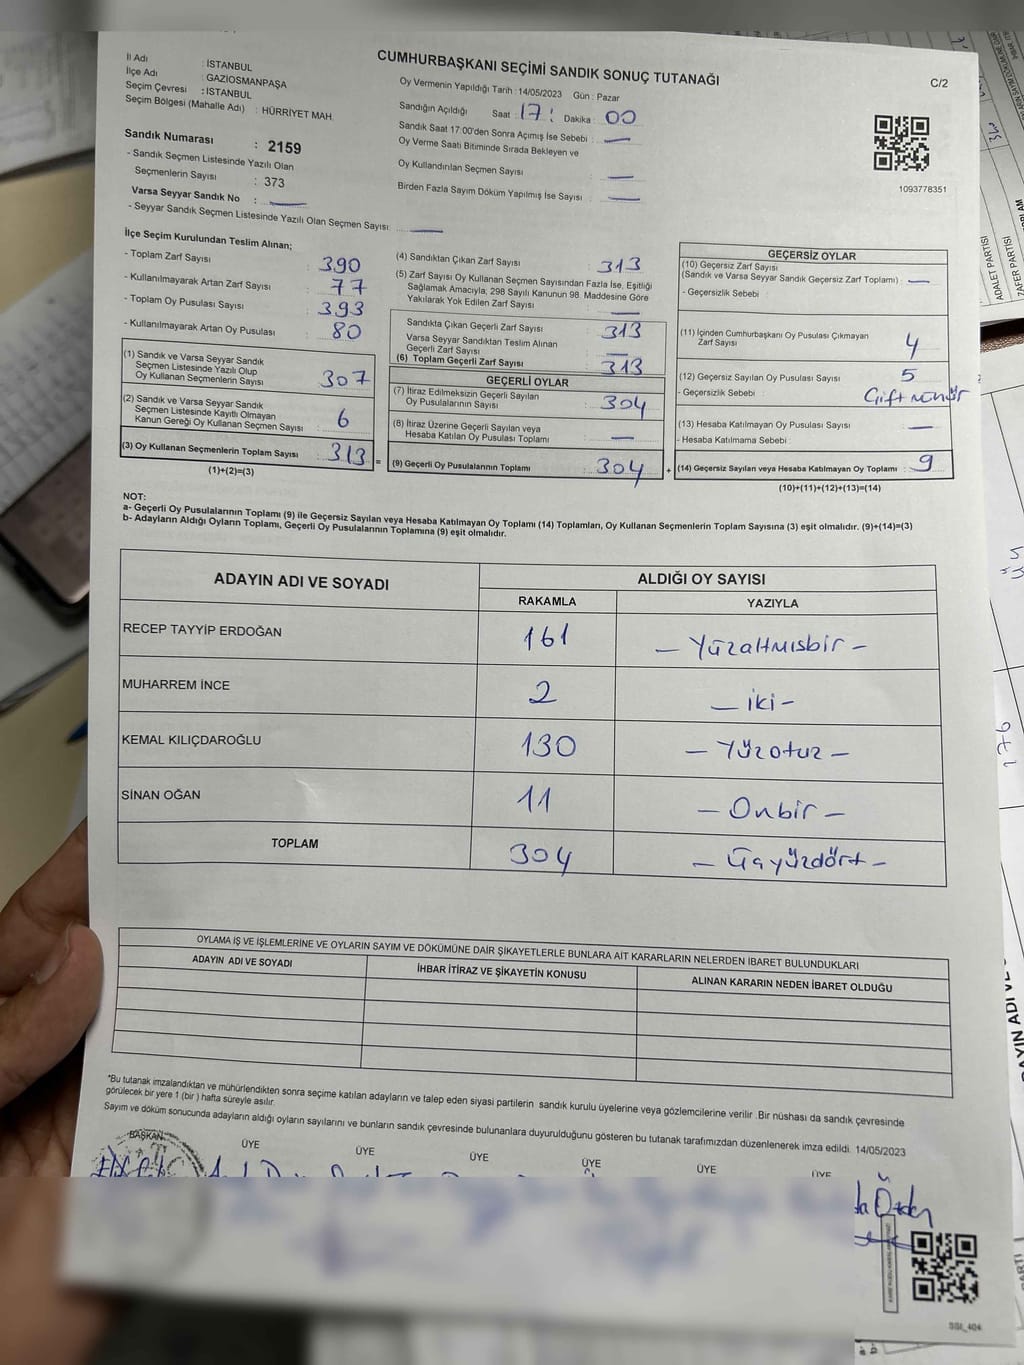 CUMHURBAŞKANI SEÇİMİ SANDIK SONUÇ TUTANAĞI
C/2
İl Adı : İSTANBUL
İlçe Adı : GAZİOSMANPAŞA
Seçim Çevresi : İSTANBUL
Seçim Bölgesi (Mahalle Adı) : HÜRRİYET MAH.
Sandık Numarası : 2159
- Sandık Seçmen Listesinde Yazılı Olan
Seçmenlerin Sayısı : 373
Varsa Seyyar Sandık No :
- Seyyar Sandık Seçmen Listesinde Yazılı Olan Seçmen Sayısı:
Oy Vermenin Yapıldığı Tarih : 14/05/2023 Gün : Pazar
Sandığın Açıldığı Saat : 17 : Dakika : 00
Sandık Saat 17:00'den Sonra Açımış İse Sebebi :
Oy Verme Saati Bitiminde Sırada Bekleyen ve
Oy Kullandırılan Seçmen Sayısı :
Birden Fazla Sayım Döküm Yapılmış İse Sayısı :
1093778351
İlçe Seçim Kurulundan Teslim Alınan;
- Toplam Zarf Sayısı : 390
- Kullanılmayarak Artan Zarf Sayısı : 77
- Toplam Oy Pusulası Sayısı : 393
- Kullanılmayarak Artan Oy Pusulası : 80
(1) Sandık ve Varsa Seyyar Sandık
Seçmen Listesinde Yazılı Olup
Oy Kullanan Seçmenlerin Sayısı : 307
(2) Sandık ve Varsa Seyyar Sandık
Seçmen Listesinde Kayıtlı Olmayan
Kanun Gereği Oy Kullanan Seçmen Sayısı : 6
(3) Oy Kullanan Seçmenlerin Toplam Sayısı : 313 =
(1)+(2)=(3)
(4) Sandıktan Çıkan Zarf Sayısı : 313
(5) Zarf Sayısı Oy Kullanan Seçmen Sayısından Fazla İse, Eşitliği
Sağlamak Amacıyla, 298 Sayılı Kanunun 98. Maddesine Göre
Yakılarak Yok Edilen Zarf Sayısı :
Sandıkta Çıkan Geçerli Zarf Sayısı : 313
Varsa Seyyar Sandıktan Teslim Alınan
Geçerli Zarf Sayısı :
(6) Toplam Geçerli Zarf Sayısı : 313
GEÇERLİ OYLAR
(7) İtiraz Edilmeksizin Geçerli Sayılan
Oy Pusulalarının Sayısı : 304
(8) İtiraz Üzerine Geçerli Sayılan veya
Hesaba Katılan Oy Pusulası Toplamı :
(9) Geçerli Oy Pusulalarının Toplamı : 304 +
GEÇERSİZ OYLAR
(10) Geçersiz Zarf Sayısı
(Sandık ve Varsa Seyyar Sandık Geçersiz Zarf Toplamı) :
- Geçersizlik Sebebi :
(11) İçinden Cumhurbaşkanı Oy Pusulası Çıkmayan
Zarf Sayısı : 4
(12) Geçersiz Sayılan Oy Pusulası Sayısı : 5
- Geçersizlik Sebebi : Çift mühür
(13) Hesaba Katılmayan Oy Pusulası Sayısı :
- Hesaba Katılmama Sebebi :
(14) Geçersiz Sayılan veya Hesaba Katılmayan Oy Toplamı : 9
(10)+(11)+(12)+(13)=(14)
NOT:
a- Geçerli Oy Pusulalarının Toplamı (9) ile Geçersiz Sayılan veya Hesaba Katılmayan Oy Toplamı (14) Toplamları, Oy Kullanan Seçmenlerin Toplam Sayısına (3) eşit olmalıdır. (9)+(14)=(3)
b- Adayların Aldığı Oyların Toplamı, Geçerli Oy Pusulalarının Toplamına (9) eşit olmalıdır.
ADAYIN ADI VE SOYADI
ALDIĞI OY SAYISI
RAKAMLA YAZIYLA
RECEP TAYYİP ERDOĞAN 161 - Yüzaltmışbir -
MUHARREM İNCE 2 - iki -
KEMAL KILIÇDAROĞLU 130 - Yüzotuz -
SİNAN OĞAN 11 - Onbir -
TOPLAM 304 - Üçyüzdört -
OYLAMA İŞ VE İŞLEMLERİNE VE OYLARIN SAYIM VE DÖKÜMÜNE DAİR ŞİKAYETLERLE BUNLARA AİT KARARLARIN NELERDEN İBARET BULUNDUKLARI
ADAYIN ADI VE SOYADI
İHBAR İTİRAZ VE ŞİKAYETİN KONUSU
ALINAN KARARIN NEDEN İBARET OLDUĞU
*Bu tutanak imzalandıktan ve mühürlendikten sonra seçime katılan adayların ve talep eden siyasi partilerin sandık kurulu üyelerine veya gözlemcilerine verilir .Bir nüshası da sandık çevresinde
görülecek bir yere 1 (bir ) hafta süreyle asılır.
Sayım ve döküm sonucunda adayların aldığı oyların sayılarını ve bunların sandık çevresinde bulunanlara duyurulduğunu gösteren bu tutanak tarafımızdan düzenlenerek imza edildi. 14/05/2023
BAŞKAN ÜYE ÜYE ÜYE ÜYE ÜYE ÜYE
ADALET PARTİSİ
ZAFER PARTİSİ
176